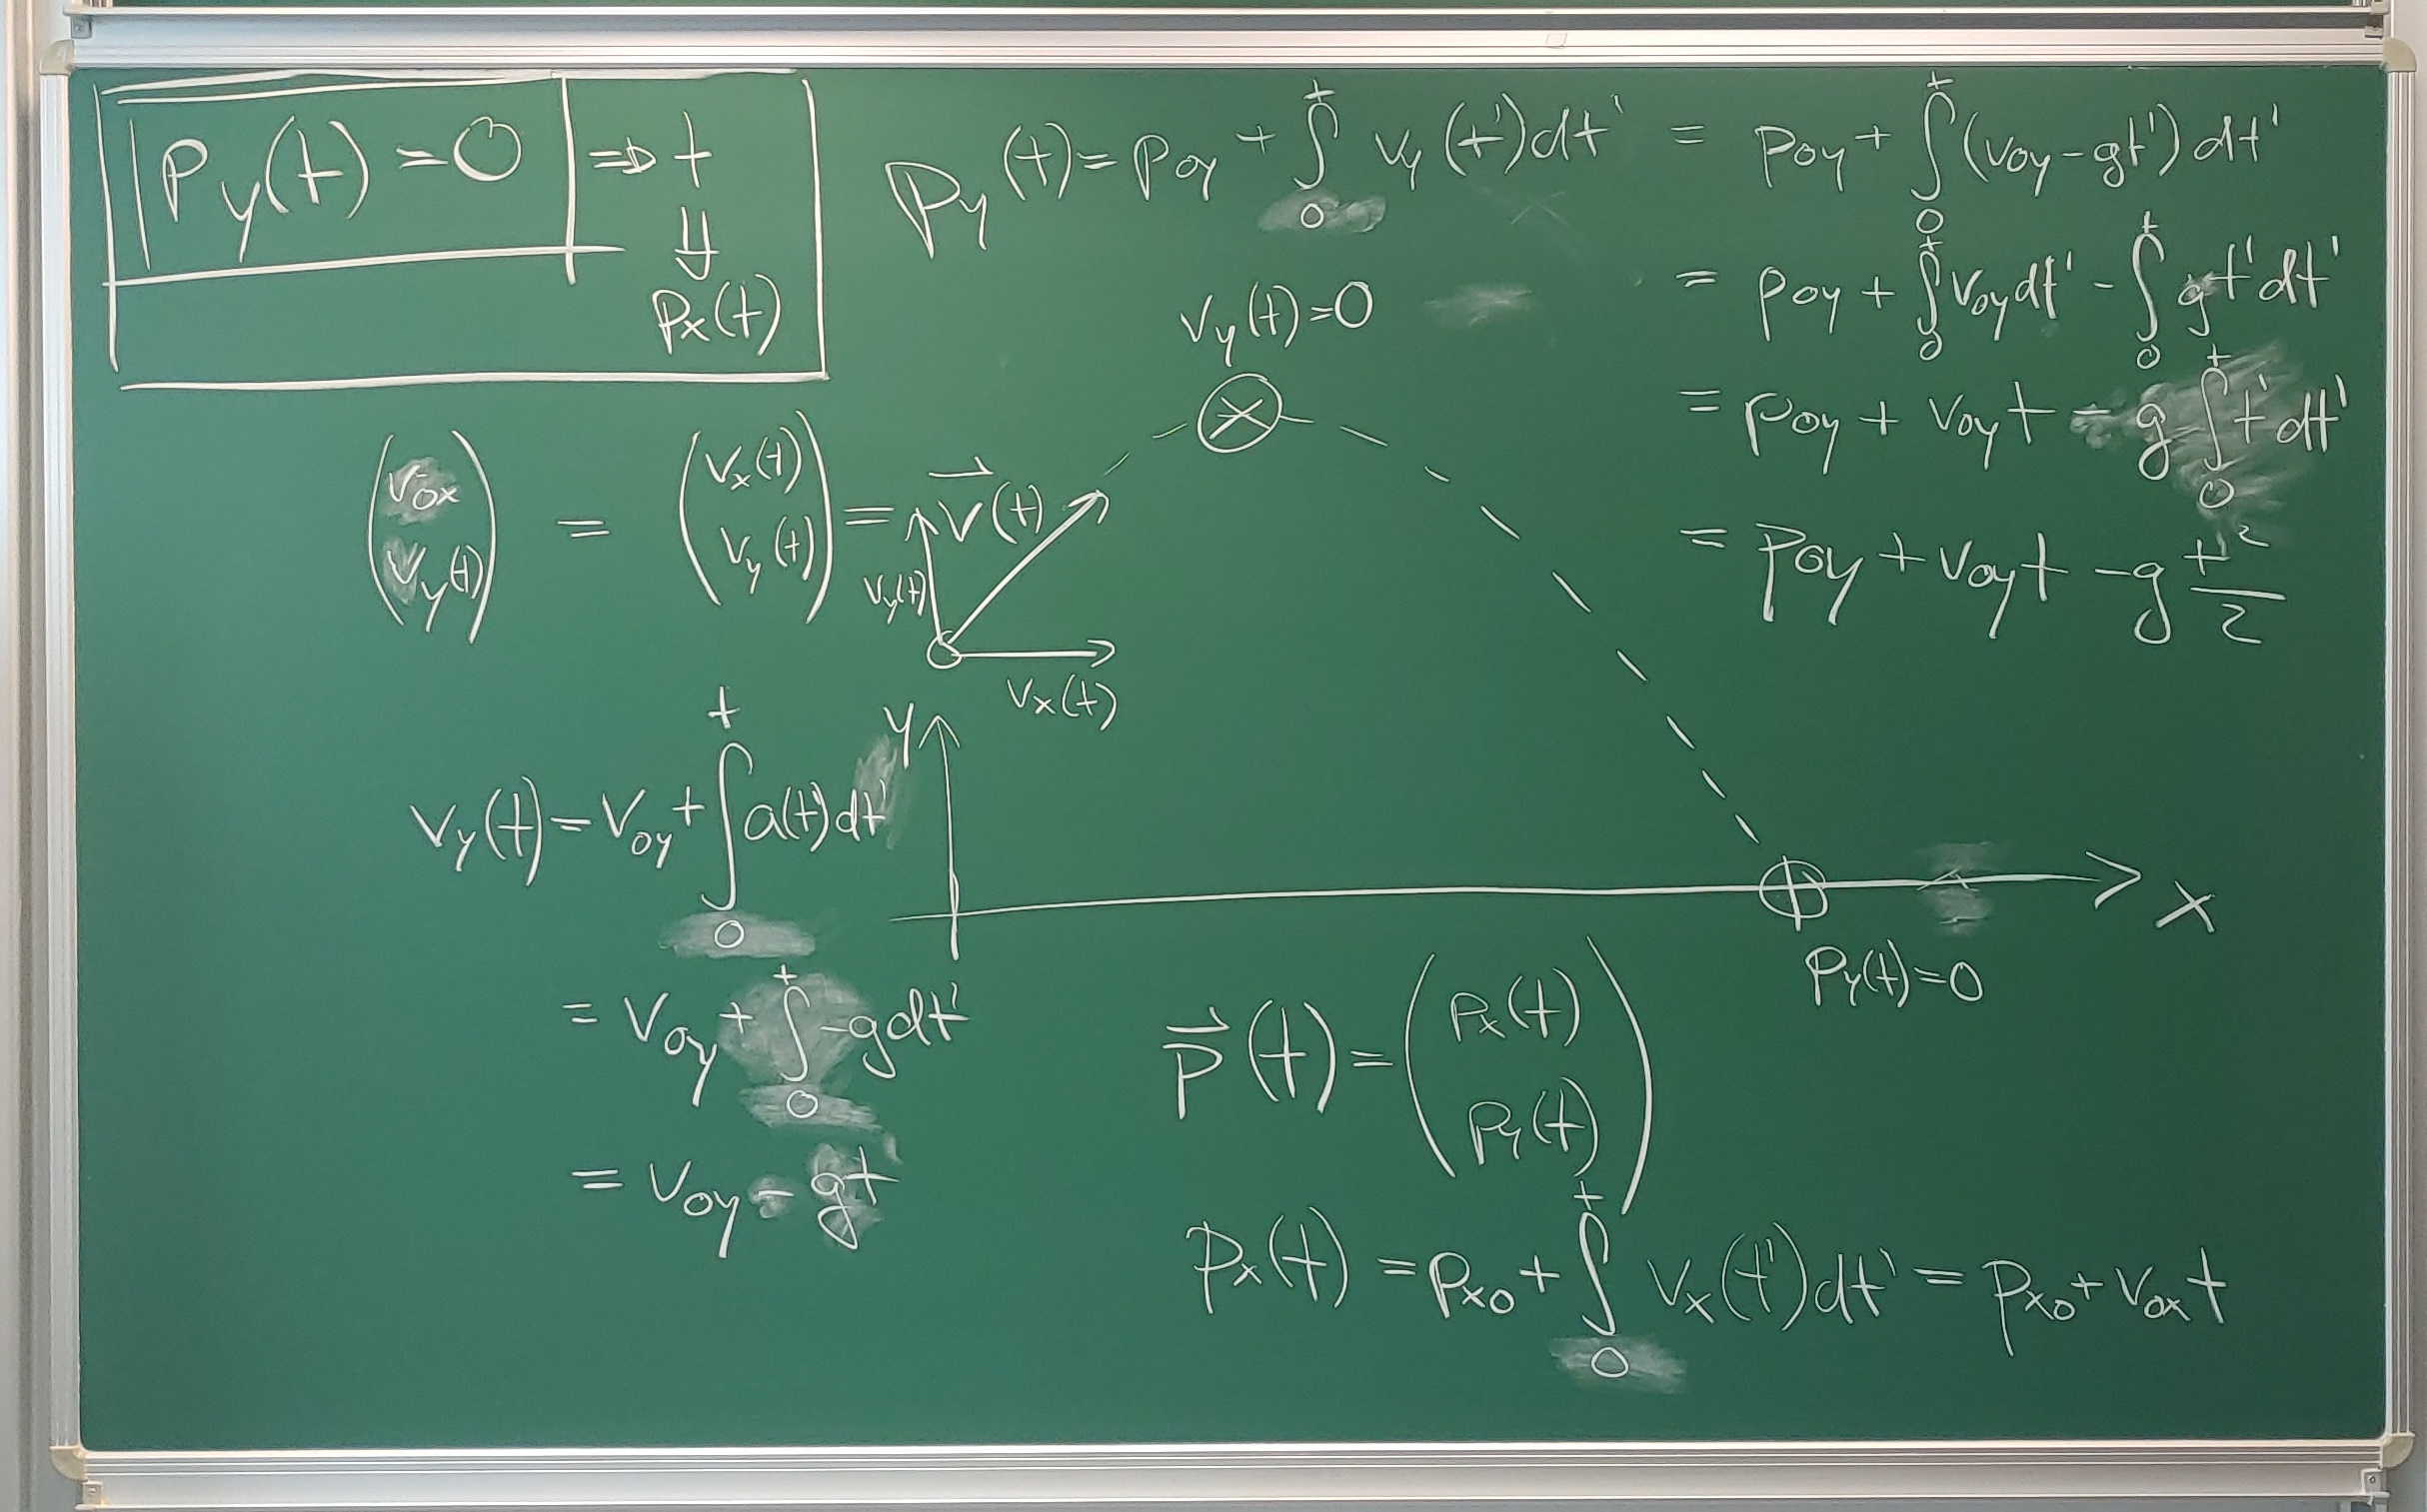 P_y(t) = 0 ⇒ t
⇓
P_x(t)
p_y(t) = p_oy + ∫_0^t v_y(t')dt' = p_oy + ∫_0^t (v_oy - gt') dt'
= p_oy + ∫_0^t v_oy dt' - ∫_0^t gt'dt'
= p_oy + v_oy t - g ∫_0^t t'dt'
= p_oy + v_oy t - g t²/2
v_y(t) = 0
(v_ox v_y(t)) = (v_x(t) v_y(t)) = v⃗(t)
v_y(t)
v_x(t)
y
v_y(t) = v_oy + ∫_0^t a(t')dt'
= v_oy + ∫_0^t -gdt'
= v_oy - gt
x
p_y(t) = 0
p⃗(t) = (p_x(t) p_y(t))
p_x(t) = p_xo + ∫_0^t v_x(t')dt' = p_xo + v_ox t